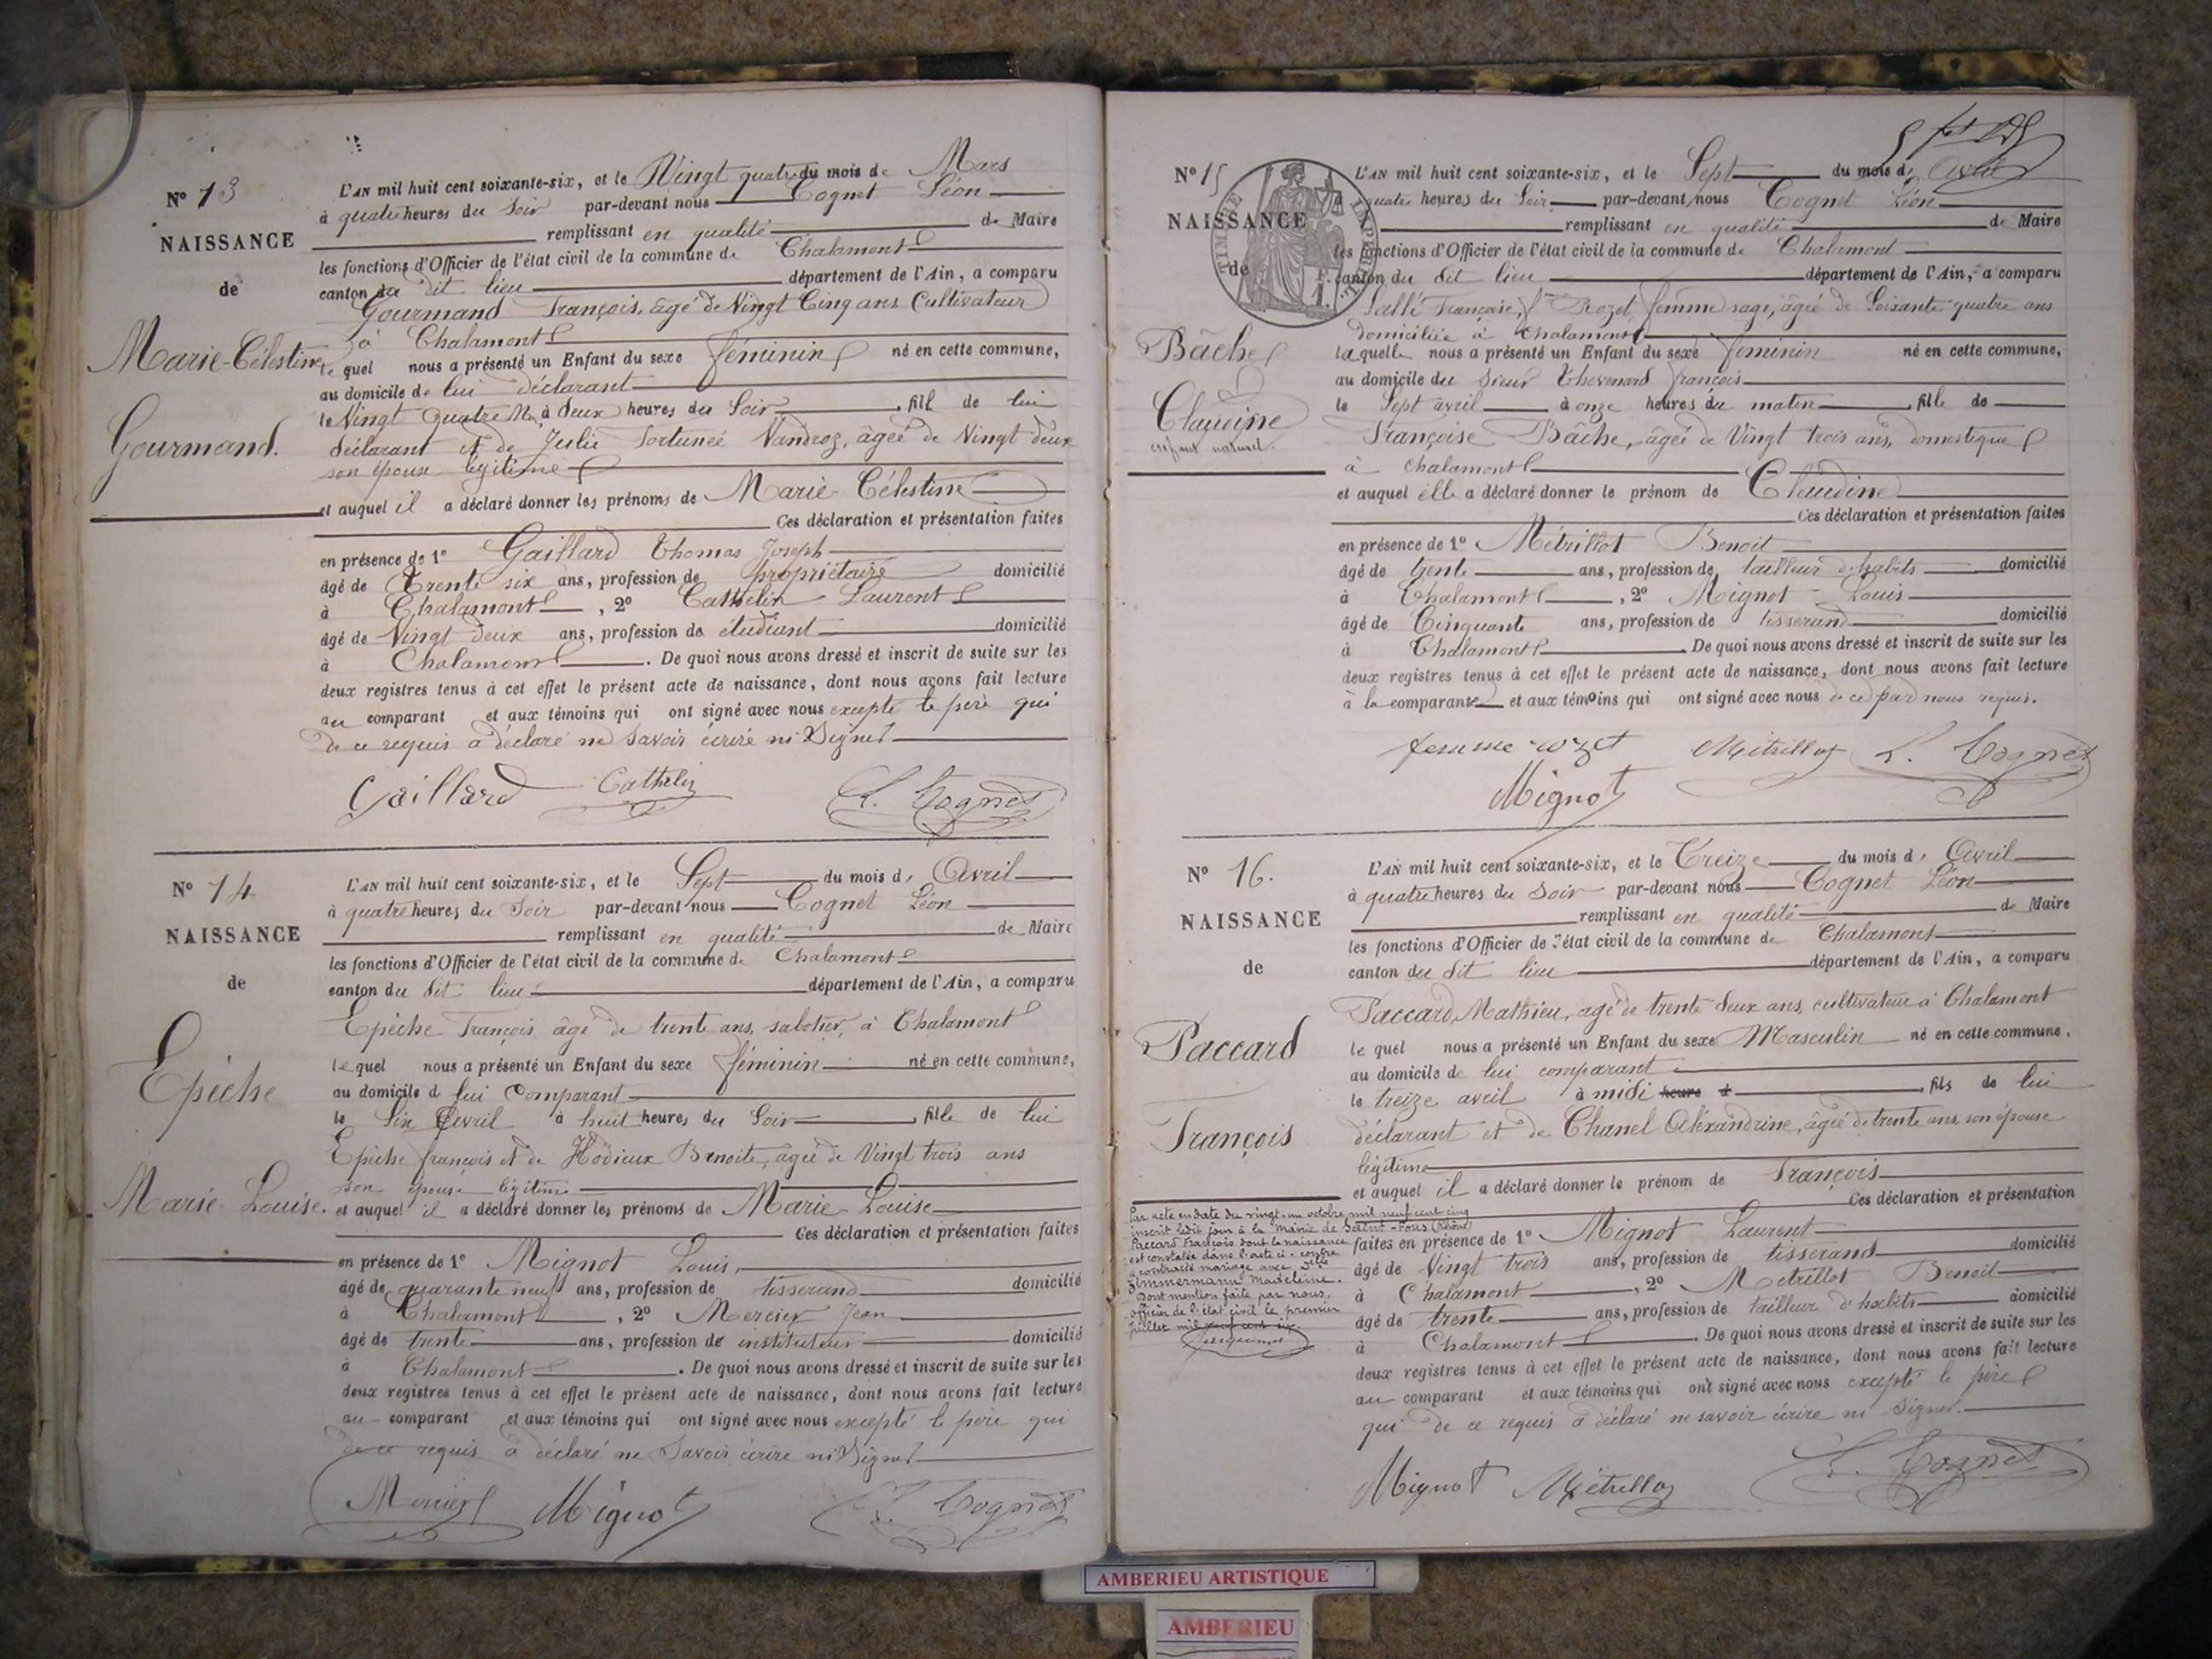 N° 13
NAISSANCE
de
Marie-Célestine
Gourmand.
L'AN mil huit cent soixante-six, et le Vingt quatre du mois de Mars
à quatre heures du Soir par-devant nous Cognet Léon
remplissant en qualité de Maire
les fonctions d'Officier de l'état civil de la commune de Chalamont
canton du dit lieu département de l'Ain, a comparu
Gourmand François, âgé de Vingt Cinq ans Cultivateur
à Chalamont
le quel nous a présenté un Enfant du sexe féminin né en cette commune,
au domicile de lui déclarant
le Vingt Quatre à deux heures du Soir, fille de lui
déclarant et de Julie Fortunée Vandroz, âgée de Vingt deux
son épouse légitime
et auquel il a déclaré donner les prénoms de Marie-Célestine
Ces déclaration et présentation faites
en présence de 1° Gaillard Thomas Joseph
âgé de Trente six ans, profession de propriétaire domicilié
à Chalamont, 2° Cathelin Laurent
âgé de Vingt deux ans, profession de étudiant domicilié
à Chalamont. De quoi nous avons dressé et inscrit de suite sur les
deux registres tenus à cet effet le présent acte de naissance, dont nous avons fait lecture
au comparant et aux témoins qui ont signé avec nous excepté le père qui
de ce requis a déclaré ne savoir écrire ni Signer
Gaillard Cathelin L. Cognet
N° 14
NAISSANCE
de
Epèche
Marie-Louise.
L'AN mil huit cent soixante-six, et le Sept du mois d' Avril
à quatre heures du Soir par-devant nous Cognet Léon
remplissant en qualité de Maire
les fonctions d'Officier de l'état civil de la commune de Chalamont
canton du dit lieu département de l'Ain, a comparu
Epèche François âgé de trente ans, sabotier, à Chalamont
le quel nous a présenté un Enfant du sexe féminin né en cette commune,
au domicile d lui Comparant
le Six Avril à huit heures du Soir, fille de lui
Epèche françois et de Hodieux Benoite, agée de Vingt trois ans
son épouse légitime
et auquel il a déclaré donner les prénoms de Marie Louise
Ces déclaration et présentation faites
en présence de 1° Mignot Louis,
âgé de quarante neuf ans, profession de tisserand domicilié
à Chalamont, 2° Mercier Jean
âgé de trente ans, profession de instituteur domicilié
à Chalamont. De quoi nous avons dressé et inscrit de suite sur les
deux registres tenus à cet effet le présent acte de naissance, dont nous avons fait lecture
au comparant et aux témoins qui ont signé avec nous excepté le père qui
de ce requis a déclaré ne Savoir écrire ni Signer
Mercier Mignot L. Cognet
N° 15
NAISSANCE
de
TIMBRE IMPÉRIAL
Bâche
Claudine
enfant naturel.
L'AN mil huit cent soixante-six, et le Sept du mois d' Avril
quatre heures du Soir par-devant nous Cognet Léon
remplissant en qualité de Maire
les fonctions d'Officier de l'état civil de la commune de Chalamont
canton du dit lieu département de l'Ain, a comparu
Françoise, Rozet, femme sage, âgée de Soixante quatre ans
domiciliée à Chalamont
laquelle nous a présenté un Enfant du sexe féminin né en cette commune,
au domicile du Sieur Thevenard François
le Sept avril à onze heures du matin, fille de
Françoise Bâche, âgée de Vingt trois ans, domestique
à Chalamont
et auquel elle a déclaré donner le prénom de Claudine
Ces déclaration et présentation faites
en présence de 1° Métrillot Benoit
âgé de trente ans, profession de tailleur d'habits domicilié
à Chalamont, 2° Mignot Louis
âgé de Cinquante ans, profession de tisserand domicilié
à Chalamont. De quoi nous avons dressé et inscrit de suite sur les
deux registres tenus à cet effet le présent acte de naissance, dont nous avons fait lecture
à la comparante et aux témoins qui ont signé avec nous de ce par nous requis.
femme rozet Métrillot L. Cognet
Mignot
N° 16.
NAISSANCE
de
Paccard
François
L'AN mil huit cent soixante-six, et le Treize du mois d' Avril
à quatre heures du Soir par-devant nous Cognet Léon
remplissant en qualité de Maire
les fonctions d'Officier de l'état civil de la commune de Chalamont
canton du dit lieu département de l'Ain, a comparu
Paccard Mathieu, agé de trente deux ans, cultivateur à Chalamont
le quel nous a présenté un Enfant du sexe Masculin né en cette commune,
au domicile de lui comparant
le treize avril à midi heure d, fils de lui
déclarant et de Chanel Alexandrine, âgée de trente ans, son épouse
légitime
et auquel il a déclaré donner le prénom de François
Ces déclaration et présentation
faites en présence de 1° Mignot Laurent
âgé de Vingt trois ans, profession de tisserand domicilié
à Chalamont, 2° Metrillot Benoit
âgé de trente ans, profession de tailleur d'habits domicilié
à Chalamont. De quoi nous avons dressé et inscrit de suite sur les
deux registres tenus à cet effet le présent acte de naissance, dont nous avons fait lecture
au comparant et aux témoins qui ont signé avec nous excepté le père
qui de ce requis a déclaré ne savoir écrire ni Signer.
Mignot Métrillot L. Cognet
Par acte en date du vingt-un octobre mil neuf cent cinq
inscrit ledit jour à la Mairie de Saint-Fons (Rhône)
Paccard François dont la naissance
est constatée dans l'acte ci-contre
a contracté mariage avec Delle
Zimmermann Madeleine.
Dont mention faite par nous,
officier de l'état civil le premier
juillet mil neuf cent six.
AMBERIEU ARTISTIQUE
AMBERIEU